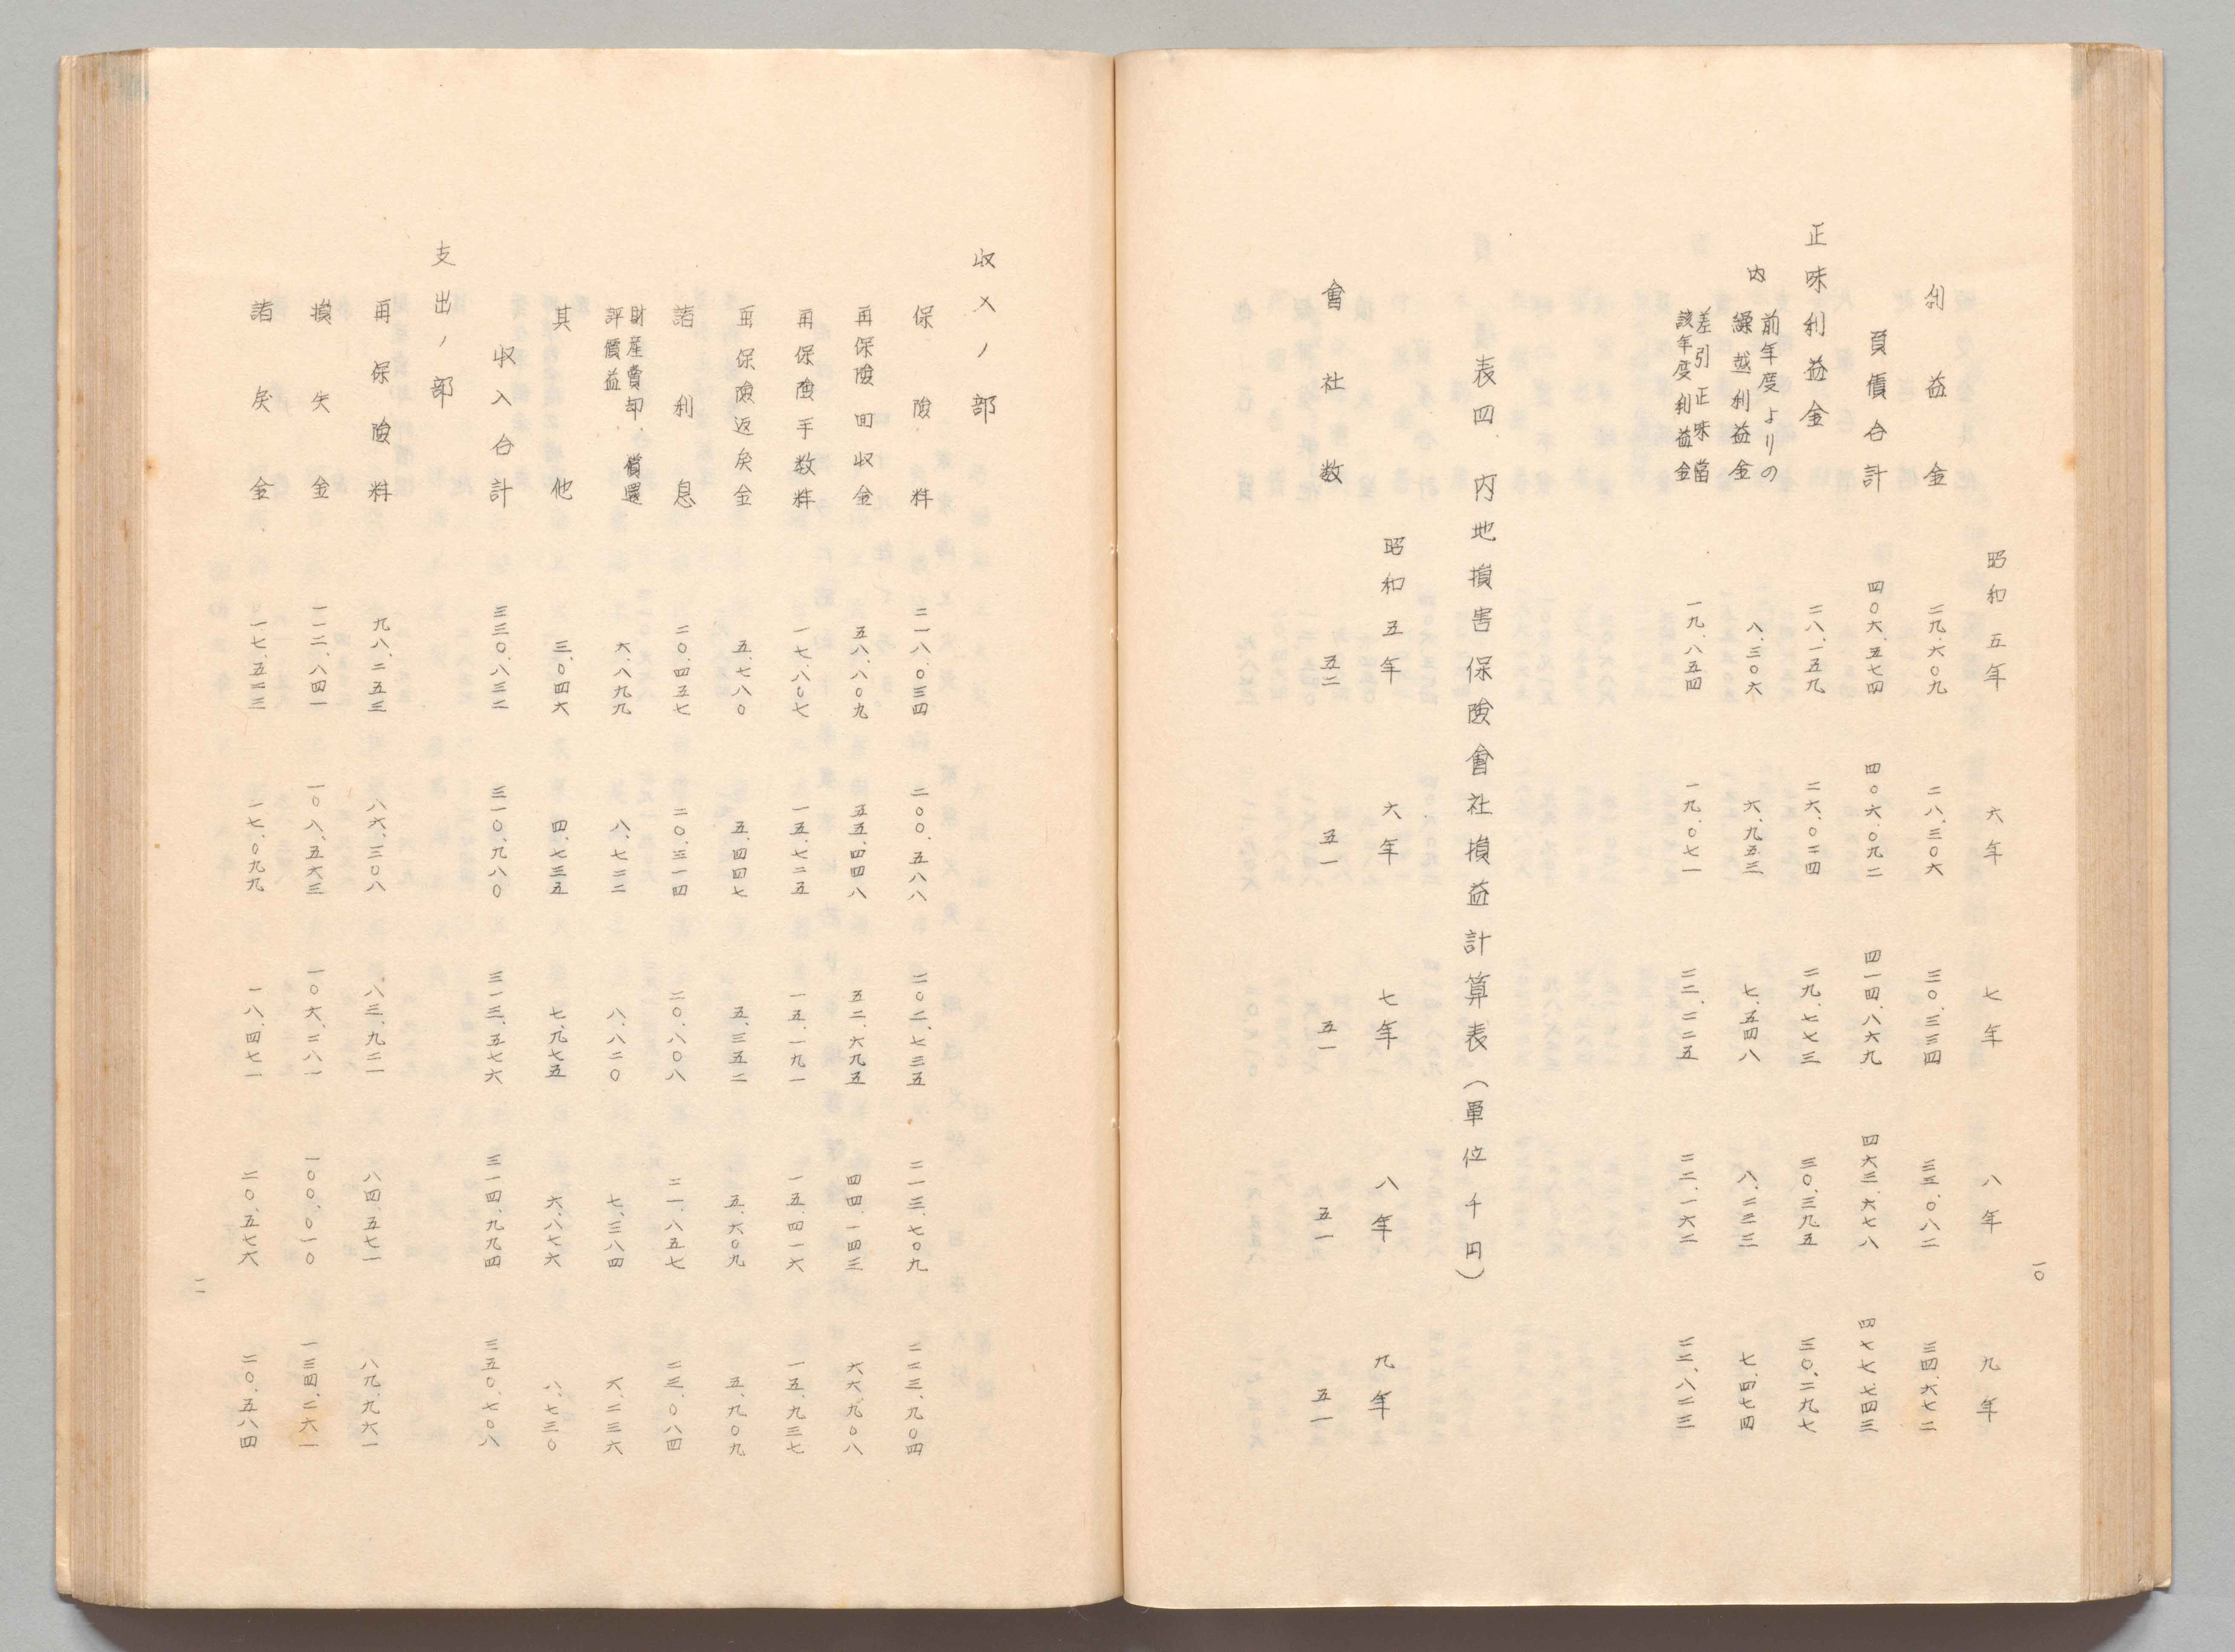 昭和五年 六年 七年 八年 九年
利益金 二九、六〇九 二八、三〇六 三〇、三三四 三三、〇八二 三四、六七二
負債合計 四〇六、五七四 四〇六、〇九二 四一四、八六九 四六三、六七八 四七七、七四三
正味利益金 二八、一五九 二六、〇二四 二九、七七三 三〇、三九五 三〇、二九七
内 前年度よりの
繰越利益金 八、三〇六 六、九五三 七、五四八 八、二三三 七、四七四
差引正味當
該年度利益金 一九、八五四 一九、〇七一 二二、二二五 二二、一六二 二二、八二三
表四、内地損害保險會社損益計算表（單位千円）
昭和五年 六年 七年 八年 九年
會社数 五二 五一 五一 五一 五一
一〇
収入ノ部
保險料 二一八、〇三四 二〇〇、五八八 二〇二、七三五 二一三、七〇九 二二三、九〇四
再保險回収金 五八、八〇九 五五、四四八 五二、六九五 四四、一四三 六六、九〇八
再保險手数料 一七、八〇七 一五、七二五 一五、一九一 一五、四一六 一五、九三七
再保險返戻金 五、七八〇 五、四四七 五、三五二 五、六〇九 五、九〇九
諸利息 二〇、四五七 二〇、三一四 二〇、八〇八 二一、八五七 二三、〇八四
財産賣却、償還
評價益 六、八九九 八、七二二 八、八二〇 七、三八四 六、二三六
其他 三、〇四六 四、七三五 七、九七五 六、八七六 八、七三〇
収入合計 三三〇、八三二 三一〇、九八〇 三一三、五七六 三一四、九九四 三五〇、七〇八
支出ノ部
再保險料 九八、二五三 八六、三〇八 八三、九二一 八四、五七一 八九、九六一
損失金 一一二、八四一 一〇八、五六三 一〇六、二八一 一〇〇、〇一〇 一三四、二六一
諸戻金 一七、五二三 一七、〇九九 一八、四七一 二〇、五七六 二〇、五八四
一一